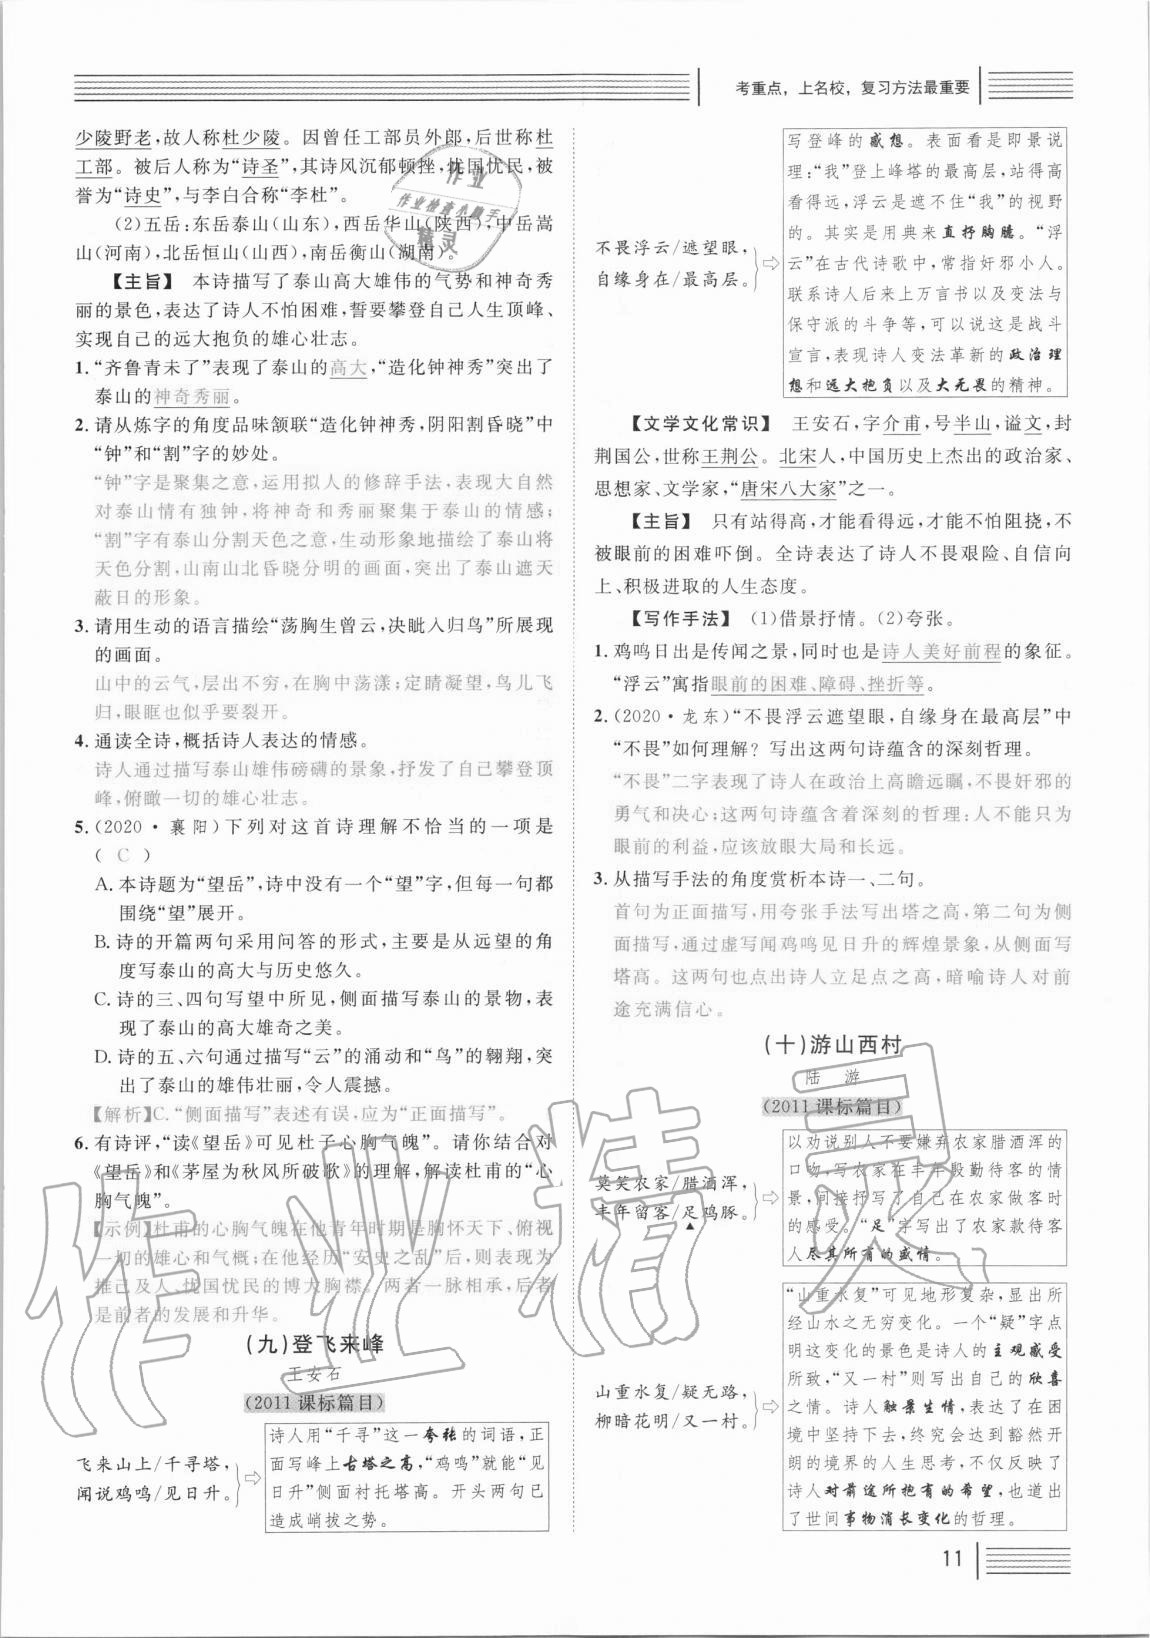 考重点，上名校，复习方法最重要
少陵野老，故人称杜少陵。因曾任工部员外郎，后世称杜
工部。被后人称为“诗圣”，其诗风沉郁顿挫，忧国忧民，被
誉为“诗史”，与李白合称“李杜”。
(2)五岳：东岳泰山(山东)，西岳华山(陕西)，中岳嵩
山(河南)，北岳恒山(山西)，南岳衡山(湖南)。
【主旨】 本诗描写了泰山高大雄伟的气势和神奇秀
丽的景色，表达了诗人不怕困难，誓要攀登自己人生顶峰、
实现自己的远大抱负的雄心壮志。
1.“齐鲁青未了”表现了泰山的高大，“造化钟神秀”突出了
泰山的神奇秀丽。
2.请从炼字的角度品味颔联“造化钟神秀，阴阳割昏晓”中
“钟”和“割”字的妙处。
“钟”字是聚集之意，运用拟人的修辞手法，表现大自然
对泰山情有独钟，将神奇和秀丽聚集于泰山的情感；
“割”字有泰山分割天色之意，生动形象地描写了泰山将
天色分割，山南山北昏晓分明的画面，突出了泰山遮天
蔽日的形象。
3.请用生动的语言描绘“荡胸生曾云，决眦入归鸟”所展现
的画面。
山中的云气，层出不穷，在胸中荡漾；定睛凝望，鸟儿飞
归，眼眶也似乎要裂开。
4.通读全诗，概括诗人表达的情感。
诗人通过描写泰山雄伟磅礴的景象，抒发了自己攀登顶
峰，俯瞰一切的雄心壮志。
5.(2020·襄阳)下列对这首诗理解不恰当的一项是
( C )
A.本诗题为“望岳”，诗中没有一个“望”字，但每一句都
围绕“望”展开。
B.诗的开篇两句采用问答的形式，主要是从远望的角
度写泰山的高大与历史悠久。
C.诗的三、四句写望中所见，侧面描写泰山的景物，表
现了泰山的高大雄奇之美。
D.诗的五、六句通过描写“云”的涌动和“鸟”的翱翔，突
出了泰山的雄伟壮丽，令人震撼。
【解析】C.“侧面描写”表述有误，应为“正面描写”。
6.有诗评，“读《望岳》可见杜子心胸气魄”。请你结合对
《望岳》和《茅屋为秋风所破歌》的理解，解读杜甫的“心
胸气魄”。
【示例】杜甫的心胸气魄在他青年时期是胸怀天下、俯视
一切的雄心和气概；在他经历“安史之乱”后，则表现为
推己及人、忧国忧民的博大胸襟。两者一脉相承，后者
是前者的发展和升华。
(九)登飞来峰
王安石
(2011课标篇目)
飞来山上/千寻塔，
闻说鸡鸣/见日升。
诗人用“千寻”这一夸张的词语，正
面写峰上古塔之高，“鸡鸣”就能“见
日升”侧面衬托塔高。开头两句已
造成峭拔之势。
不畏浮云/遮望眼，
自缘身在/最高层。
写登峰的感想。表面看是即景说
理：“我”登上峰塔的最高层，站得高
看得远，浮云是遮不住“我”的视野
的。其实是用典来直抒胸臆。“浮
云”在古代诗歌中，常指奸邪小人。
联系诗人后来上万言书以及变法与
保守派的斗争等，可以说这是战斗
宣言，表现诗人变法革新的政治理
想和远大抱负以及大无畏的精神。
【文学文化常识】 王安石，字介甫，号半山，谥文，封
荆国公，世称王荆公。北宋人，中国历史上杰出的政治家、
思想家、文学家，“唐宋八大家”之一。
【主旨】 只有站得高，才能看得远，才能不怕阻挠，不
被眼前的困难吓倒。全诗表达了诗人不畏艰险、自信向
上、积极进取的人生态度。
【写作手法】 (1)借景抒情。(2)夸张。
1.鸡鸣日出是传闻之景，同时也是诗人美好前程的象征。
“浮云”寓指眼前的困难、障碍、挫折等。
2.(2020·龙东)“不畏浮云遮望眼，自缘身在最高层”中
“不畏”如何理解？写出这两句诗蕴含的深刻哲理。
“不畏”二字表现了诗人在政治上高瞻远瞩，不畏奸邪的
勇气和决心；这两句诗蕴含着深刻的哲理：人不能只为
眼前的利益，应该放眼大局和长远。
3.从描写手法的角度赏析本诗一、二句。
首句为正面描写，用夸张手法写出塔之高，第二句为侧
面描写，通过虚写闻鸡鸣见日升的辉煌景象，从侧面写
塔高。这两句也点出诗人立足点之高，暗喻诗人对前
途充满信心。
(十)游山西村
陆 游
(2011课标篇目)
莫笑农家/腊酒浑，
丰年留客/足鸡豚。
以劝说别人不要嫌弃农家腊酒浑的
口吻，写农家在丰年殷勤待客的情
景，间接抒写了自己在农家做客时
的感受。“足”字写出了农家款待客
人尽其所有的盛情。
山重水复/疑无路，
柳暗花明/又一村。
“山重水复”可见地形复杂，显出所
经山水之无穷变化。一个“疑”字点
明这变化的景色是诗人的主观感受
所致，“又一村”则写出自己的欣喜
之情。诗人触景生情，表达了在困
境中坚守下去，终究会达到豁然开
朗的境界的人生思考，不仅反映了
诗人对前途所抱有的希望，也道出
了世间事物消长变化的哲理。
11
作业
作业检查小助手
精灵
作业精灵